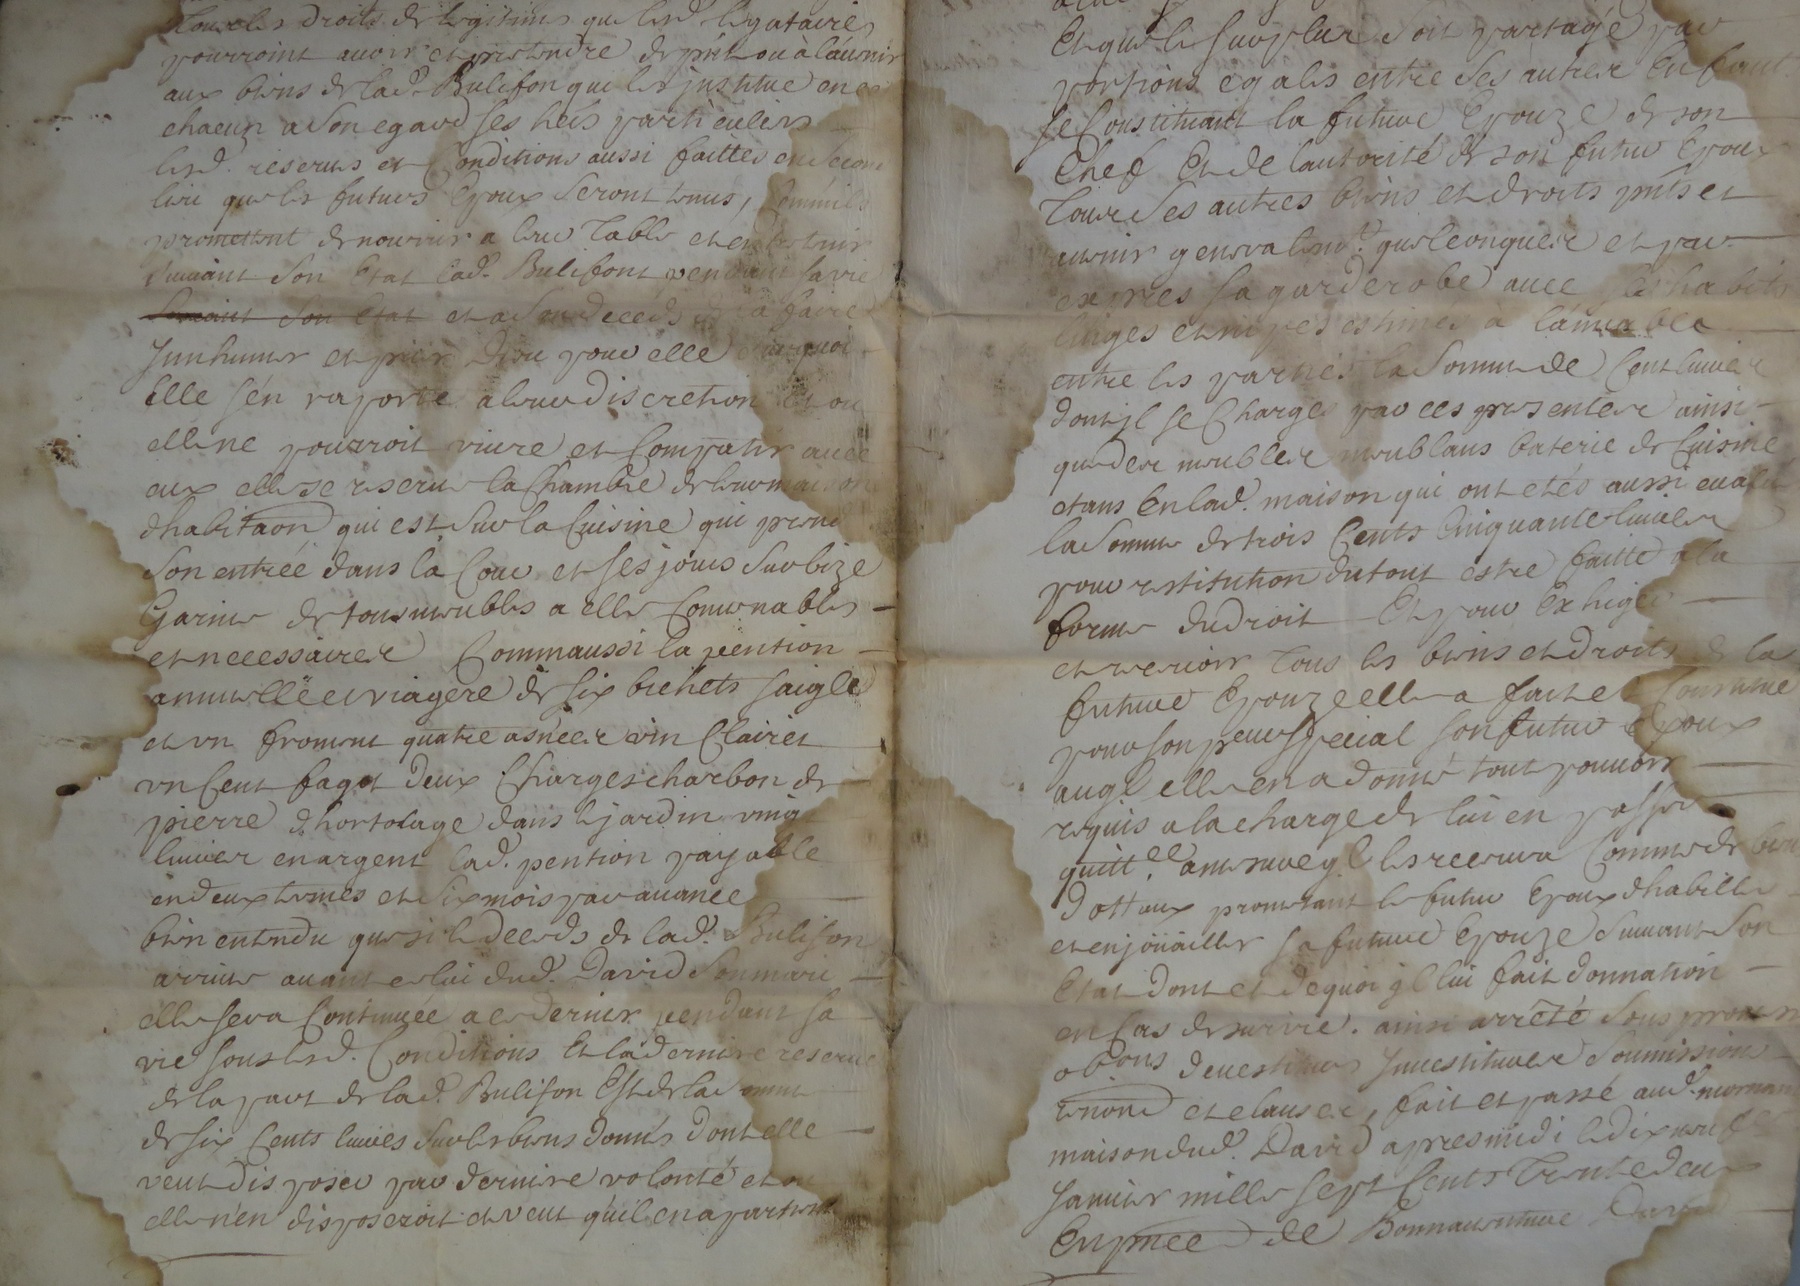 tous les droits de legitime que lesd. legataires
pourroint avoir et pretendre de pnt ou à lavenir
aux biens de lad. Bulifon qui les institue en ce
chacun a son egard ses heis particuliers
lesd. reserves et Conditions aussi faittes en
lieu que les futurs Epoux seront tenus, Comm'ils
promettent de nourrir a leur Table et entretenir
suivant son Etat lad. Bulifont pendant sa vie
suivant son etat et a son deceds de la faire
Jnnhumer et prier Dieu pour elle dequoi
Elle s'én raporte a leur discretion et ou
elle ne pourroit vivre et Compatir avec
eux elle se reserve la Chambre de leur maison
d'habitaon qui est sur la Cuisine qui prend
son entréé dans la Cour et ses jours sur bize
Garnie de tous meubles a elle Convenables
et necessaires Comm aussi la pention
annuelle et viagere de six bichets saigle
et un froment quatre asnéés vin Clairet
un Cent fagot deux Charges charbon de
pierre d'hortolage dans le jardin vingt
livres en argent lad. pention payable
en deux termes et six mois par avance
bien entendu que si le deceds de lad. Bulifon
arrive avant celui dud. David son mari
elle sera Continuée a ce dernier pendant sa
vie sous lesd. Conditions Et la derniere reserve
de la part de lad. Bulifon Est de la somme
de six Cents livres sur les biens donnés dont elle
veut disposer par derniere volonté et ou
elle n'en disposeroit et veut qu'il en apartienne
Et que le surplus soit partagé par
portions egales entre ses autres Enfants
se Constituant la future Epouze de son
Chef Et de l'autorité de son futur Epoux
Tous ses autres biens et droits pnts et
avenir generalemt. quelconques et par
exprés sa garderobe avec ses habits
linges et nipes estimés à l'amiable
entre les parties la somme de Cent livres
dont jl se Charge par ces presentes ainsi
que des meubles meublans baterie de Cuisine
etans En lad. maison qui ont etés aussi evalués
la somme de trois Cents Cinquante livres
pour restitution du tout estre faitte a la
forme du droit Et pour Exhiger
et recevoir Tous les biens et droits de la
future Epouze elle a fait et Constitué
pour son pcur special son futur Epoux
auql. elle en a donné tout pouvoir
requis a la charge de lui en passer
quitt.ce a mesure qjl les recevra Comme de biens
dottaux promettant le futur Epoux d'habiller
et enjoüailler sa future Epouze suivant son
Etat dont et dequoi jl lui fait donnation
en Cas de survie. ainsi arrété sous
obons devestitures Jnvestitures soumissions
renons et clauses, fait et passé aud. mornant
maison dud. David apres midi le dix neuf
Janvier mille sept Cents Trente deux
En pnce de Bonnaventure David